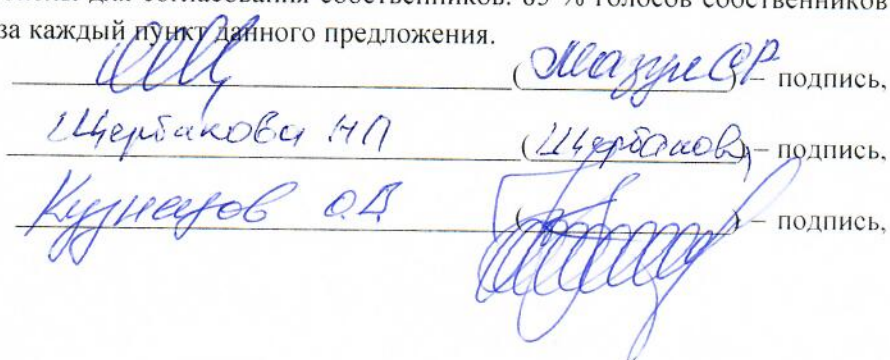 для согласования собственников. 85 % голосов собственников
за каждый пункт данного предложения.
(Мазун СР) – подпись,
Щербакова НП (Щербакова) – подпись,
Кузнецов О.Д. ( ) – подпись,